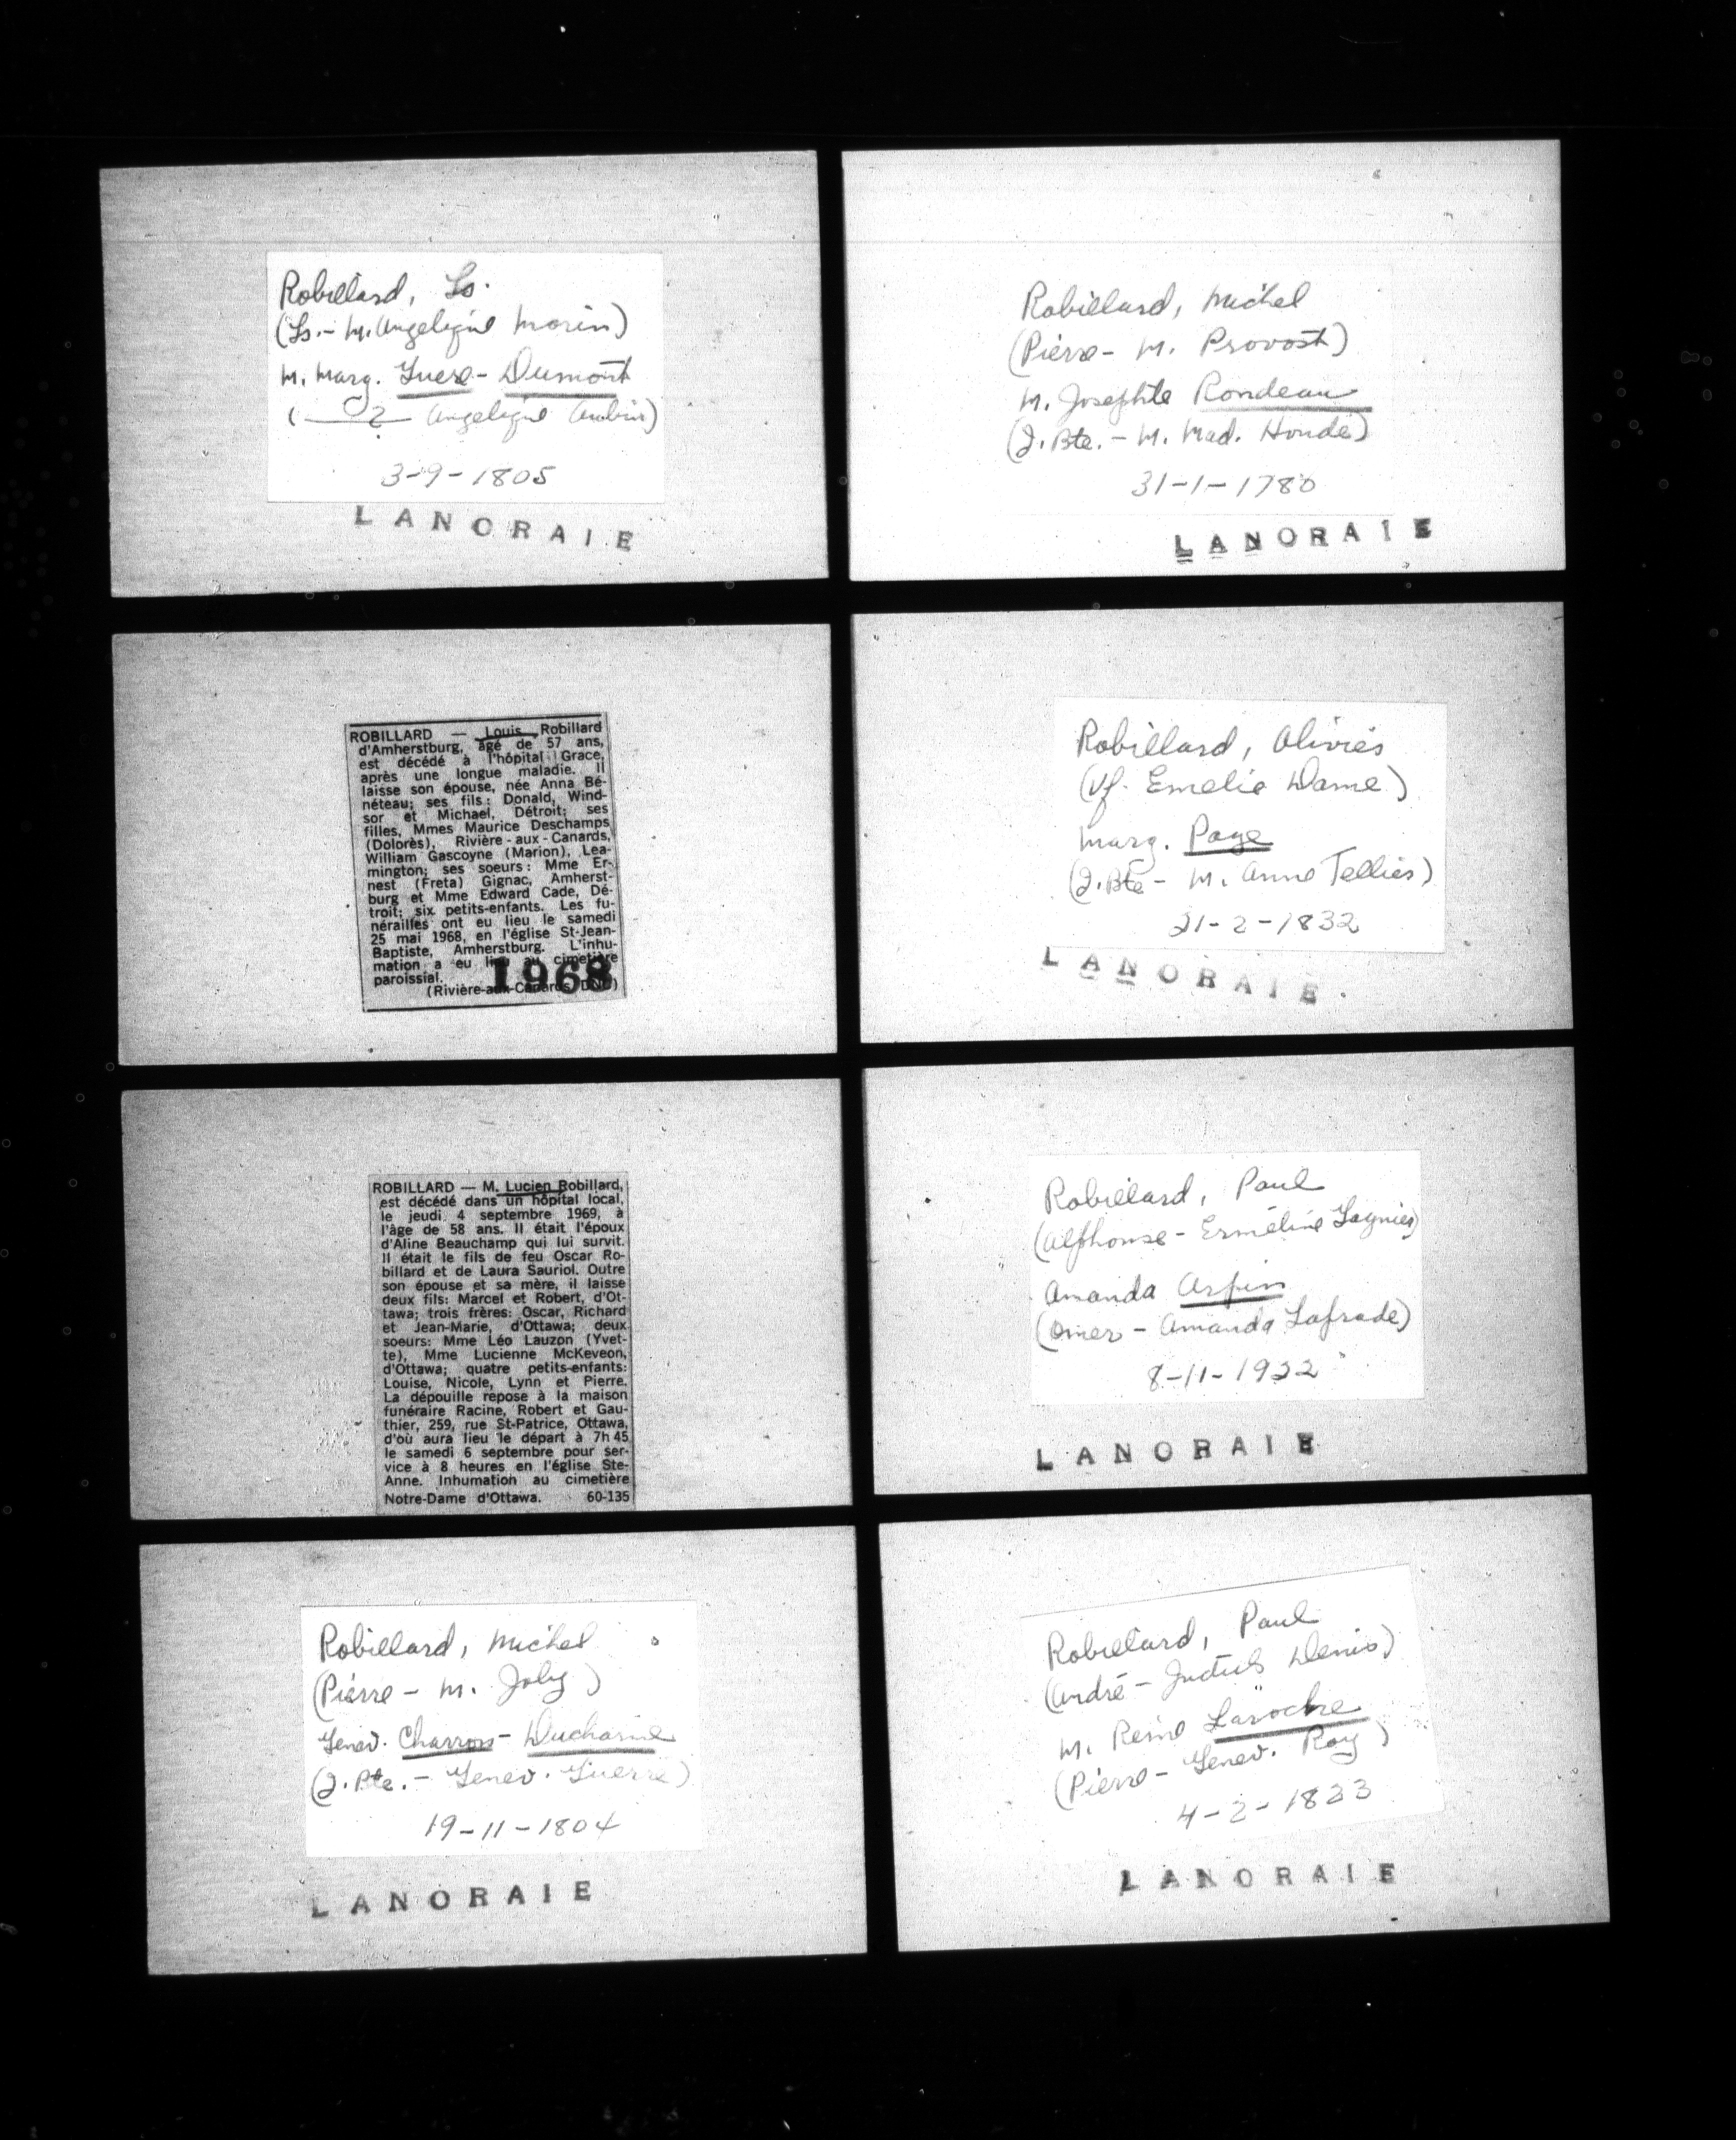 Robillard, Ls.
(Ls. - M. Angelique Morin)
M. Marg. Guere - Dumont
( ? Angelique Aubin)
3-9-1805
LANORAIE
ROBILLARD — Louis Robillard
d'Amherstburg, âgé de 57 ans,
est décédé à l'hôpital Grace,
après une longue maladie. Il
laisse son épouse, née Anna Bé-
néteau; ses fils: Donald, Wind-
sor et Michael, Détroit; ses
filles, Mmes Maurice Deschamps
(Dolorès), Rivière-aux-Canards,
William Gascoyne (Marion), Lea-
mington; ses soeurs: Mme Er-
nest (Freta) Gignac, Amherst-
burg et Mme Edward Cade, Dé-
troit; six petits-enfants. Les fu-
nérailles ont eu lieu le samedi
25 mai 1968, en l'église St-Jean-
Baptiste, Amherstburg. L'inhu-
mation a eu lieu au cimetière
paroissial.
(Rivière-aux-Canards DNC)
1968
ROBILLARD — M. Lucien Robillard,
est décédé dans un hôpital local,
le jeudi 4 septembre 1969, à
l'âge de 58 ans. Il était l'époux
d'Aline Beauchamp qui lui survit.
Il était le fils de feu Oscar Ro-
billard et de Laura Sauriol. Outre
son épouse et sa mère, il laisse
deux fils: Marcel et Robert, d'Ot-
tawa; trois frères: Oscar, Richard
et Jean-Marie, d'Ottawa; deux
soeurs: Mme Léo Lauzon (Yvet-
te), Mme Lucienne McKeveon,
d'Ottawa; quatre petits-enfants:
Louise, Nicole, Lynn et Pierre.
La dépouille repose à la maison
funéraire Racine, Robert et Gau-
thier, 259, rue St-Patrice, Ottawa,
d'où aura lieu le départ à 7h 45
le samedi 6 septembre pour ser-
vice à 8 heures en l'église Ste-
Anne. Inhumation au cimetière
Notre-Dame d'Ottawa. 60-135
Robillard, Michel
(Pierre - M. Joly)
Genev. Charron - Ducharme
(J. Bte. - Genev. Guerre)
19-11-1804
LANORAIE
Robillard, Michel
(Pierre - M. Provost)
M. Josephte Rondeau
(J. Bte. - M. Mad. Houde)
31-1-1780
LANORAIE
Robillard, Olivier
(Vf. Emelie Dame)
Marg. Page
(J. Bte - M. Anne Tellier)
21-2-1832
LANORAIE.
Robillard, Paul
(Alphonse - Ermeline Gagnier)
Amanda Arpin
(Omer - Amanda Lafrade)
8-11-1922
LANORAIE
Robillard, Paul
(André - Judith Denis)
M. Reine Laroche
(Pierre - Genev. Roy)
4-2-1823
LANORAIE